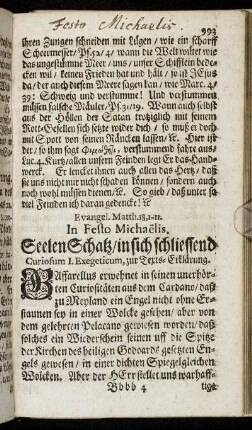 Festo Michaelis.
993
ihren Zungen schneiden mit Lügen / wie ein scharff
Scheermesser / Ps. 52/4/ wann die Welt wütet wie
das ungestümme Meer / uns / unser Schifflein bede-
cken wil / keinen Frieden hat und hält / so ist JEsus
da / der auch diesem Meere sagen kan / wie Marc. 4/
39: Schweig und verstumme! Und verstummen
müssen falsche Mäuler / Ps. 31/19. Wann auch selbst
aus der Höllen der Satan trotziglich mit seinem
Rott-Gesellen sich setzte wider dich / so muß er doch
mit Spott von seinen Räncken lassen / &c. Hier ist
der / so ihm sagt verstummend fahre aus /
Luc. 4. Kurtz / allen unsern Feinden legt Er das Hand-
werck. Er lencket ihnen auch allen das Hertz / daß
sie uns nicht nur nicht schaden können / sondern auch
noch wohl müssen dienen / &c. So gieb / daß unser so
viel Feinden ich daran gedencke!
Evangel. Matth. 18, 1-11.
In Festo Michaëlis,
Seelen Schatz / in sich schliessend
Curiosum I. Exegeticum, zur Texts-Erklärung.
GAffarellus erwehnet in seinen unerhör-
ten Curiositäten aus dem Cardano / daß
zu Meyland ein Engel nicht ohne Er-
staunen sey in einer Wolcke gesehen / aber von
dem gelehrten Pelacano gewiesen worden / daß
solches ein Wiederschein seinen uff die Spitze
der Kirchen des heiligen Godoards gesetzten En-
gels gewesen / in einer dichten Spiegelgleichen
Wolcken. Aber der HErr stellet uns warhaff-
Bbbb 4
tige